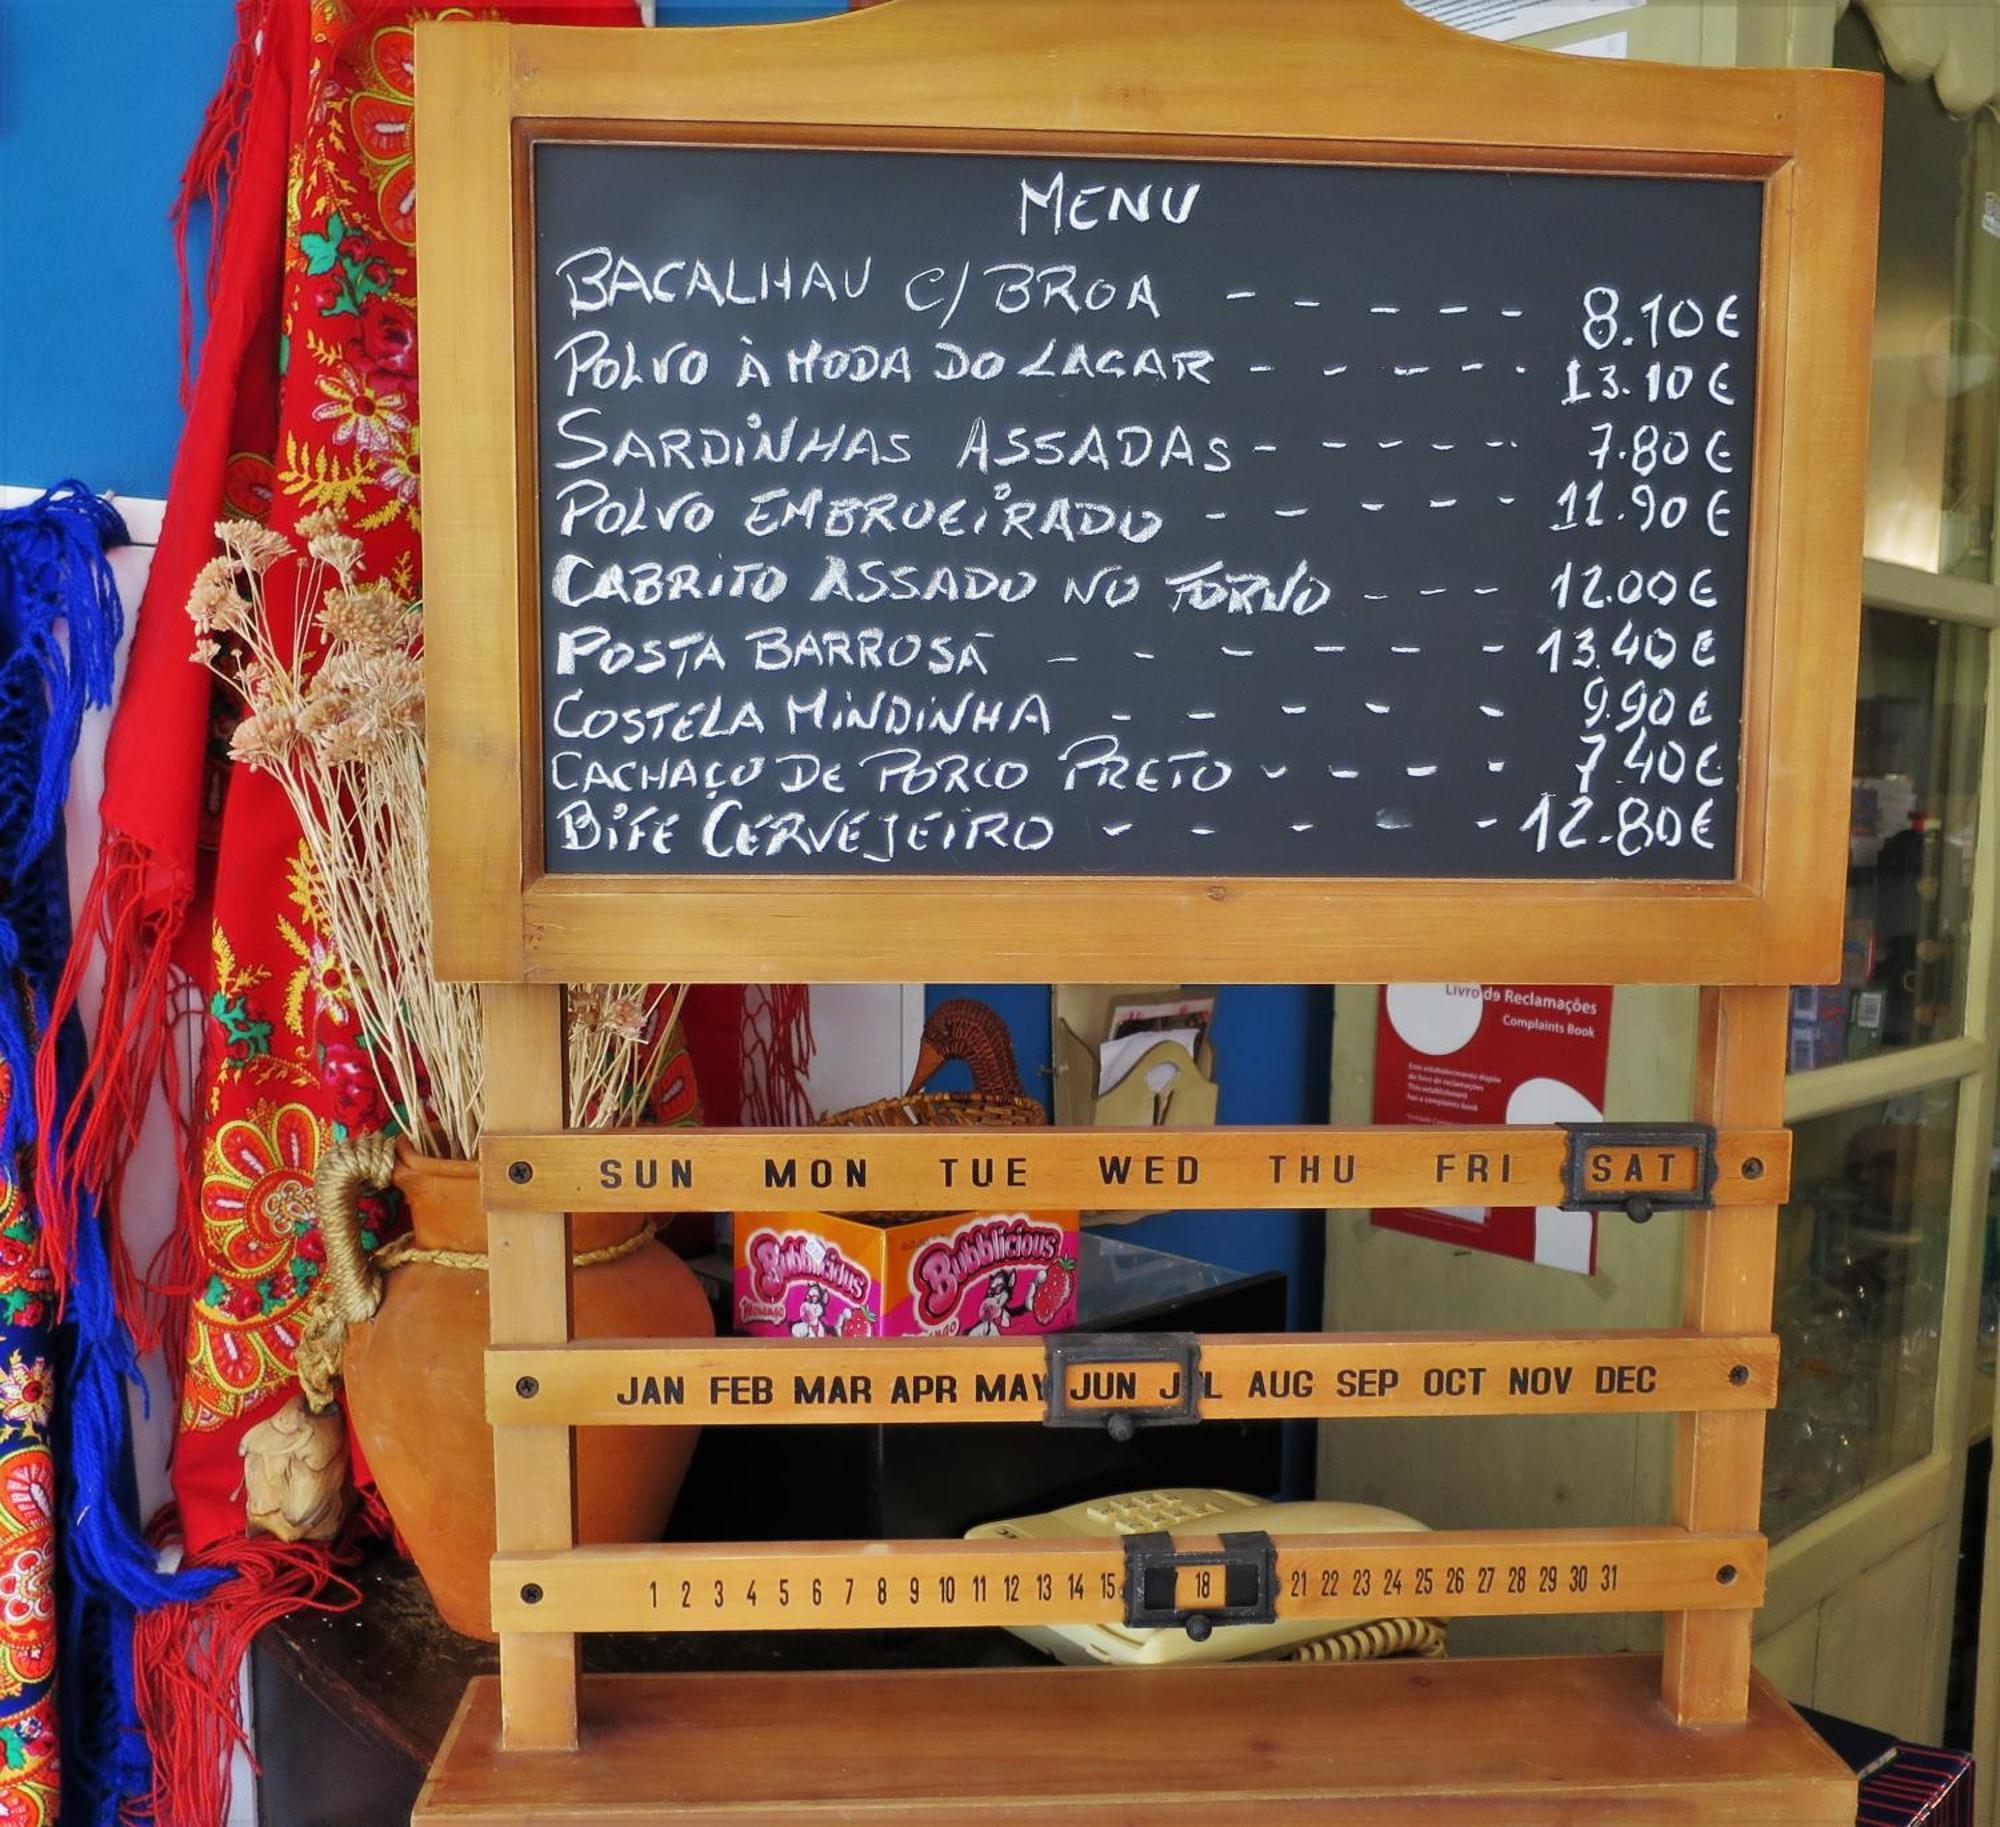 MENU
BACALHAU C/ BROA - - - - - 8.10€
POLVO À MODA DO LAGAR - - - - - 13.10€
SARDINHAS ASSADAS - - - - - 7.80€
POLVO EMBROEIRADO - - - - - 11.90€
CABRITO ASSADO NO FORNO - - - 12.00€
POSTA BARROSÃ - - - - - - 13.40€
COSTELA MINDINHA - - - - - 9.90€
CACHAÇO DE PORCO PRETO - - - - 7.40€
BIFE CERVEJEIRO - - - - - 12.80€
Livro de Reclamações
Complaints Book
Este estabelecimento dispõe
do livro de reclamações
This establishment
has a complaints book
SUN MON TUE WED THU FRI SAT
Bubblicious Bubblicious
MORANGO
JAN FEB MAR APR MAY JUN JUL AUG SEP OCT NOV DEC
1 2 3 4 5 6 7 8 9 10 11 12 13 14 15 18 21 22 23 24 25 26 27 28 29 30 31